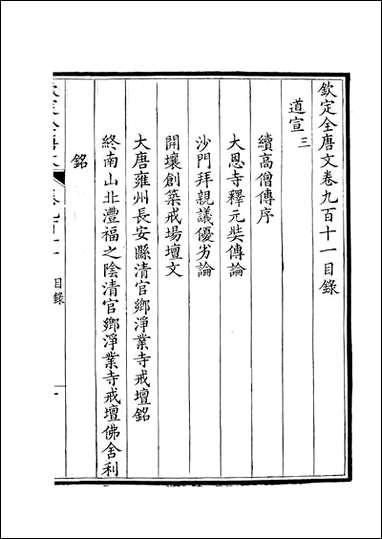 欽定全唐文卷九百十一目錄
道宣三
續高僧傳序
大恩寺釋元奘傳論
沙門拜親議優劣論
開壤創築戒場壇文
大唐雍州長安縣清官鄉淨業寺戒壇銘
終南山北澧福之陰清官鄉淨業寺戒壇佛舍利
銘
目錄